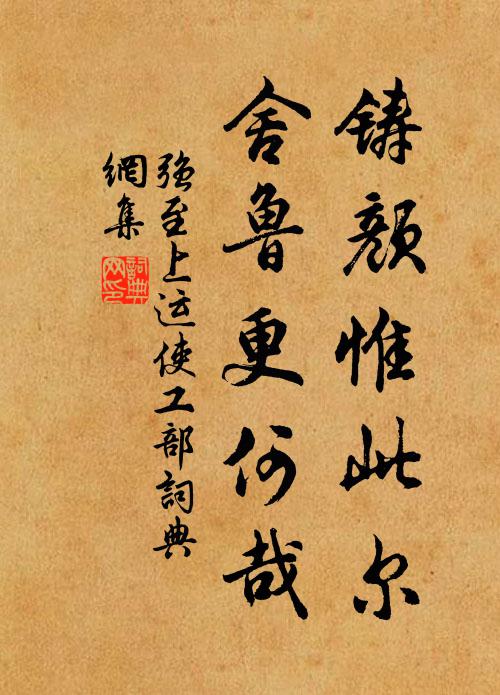 铸颜惟此尔
舍鲁更何哉
强至上运使工部詞典
網集
詞典
网印